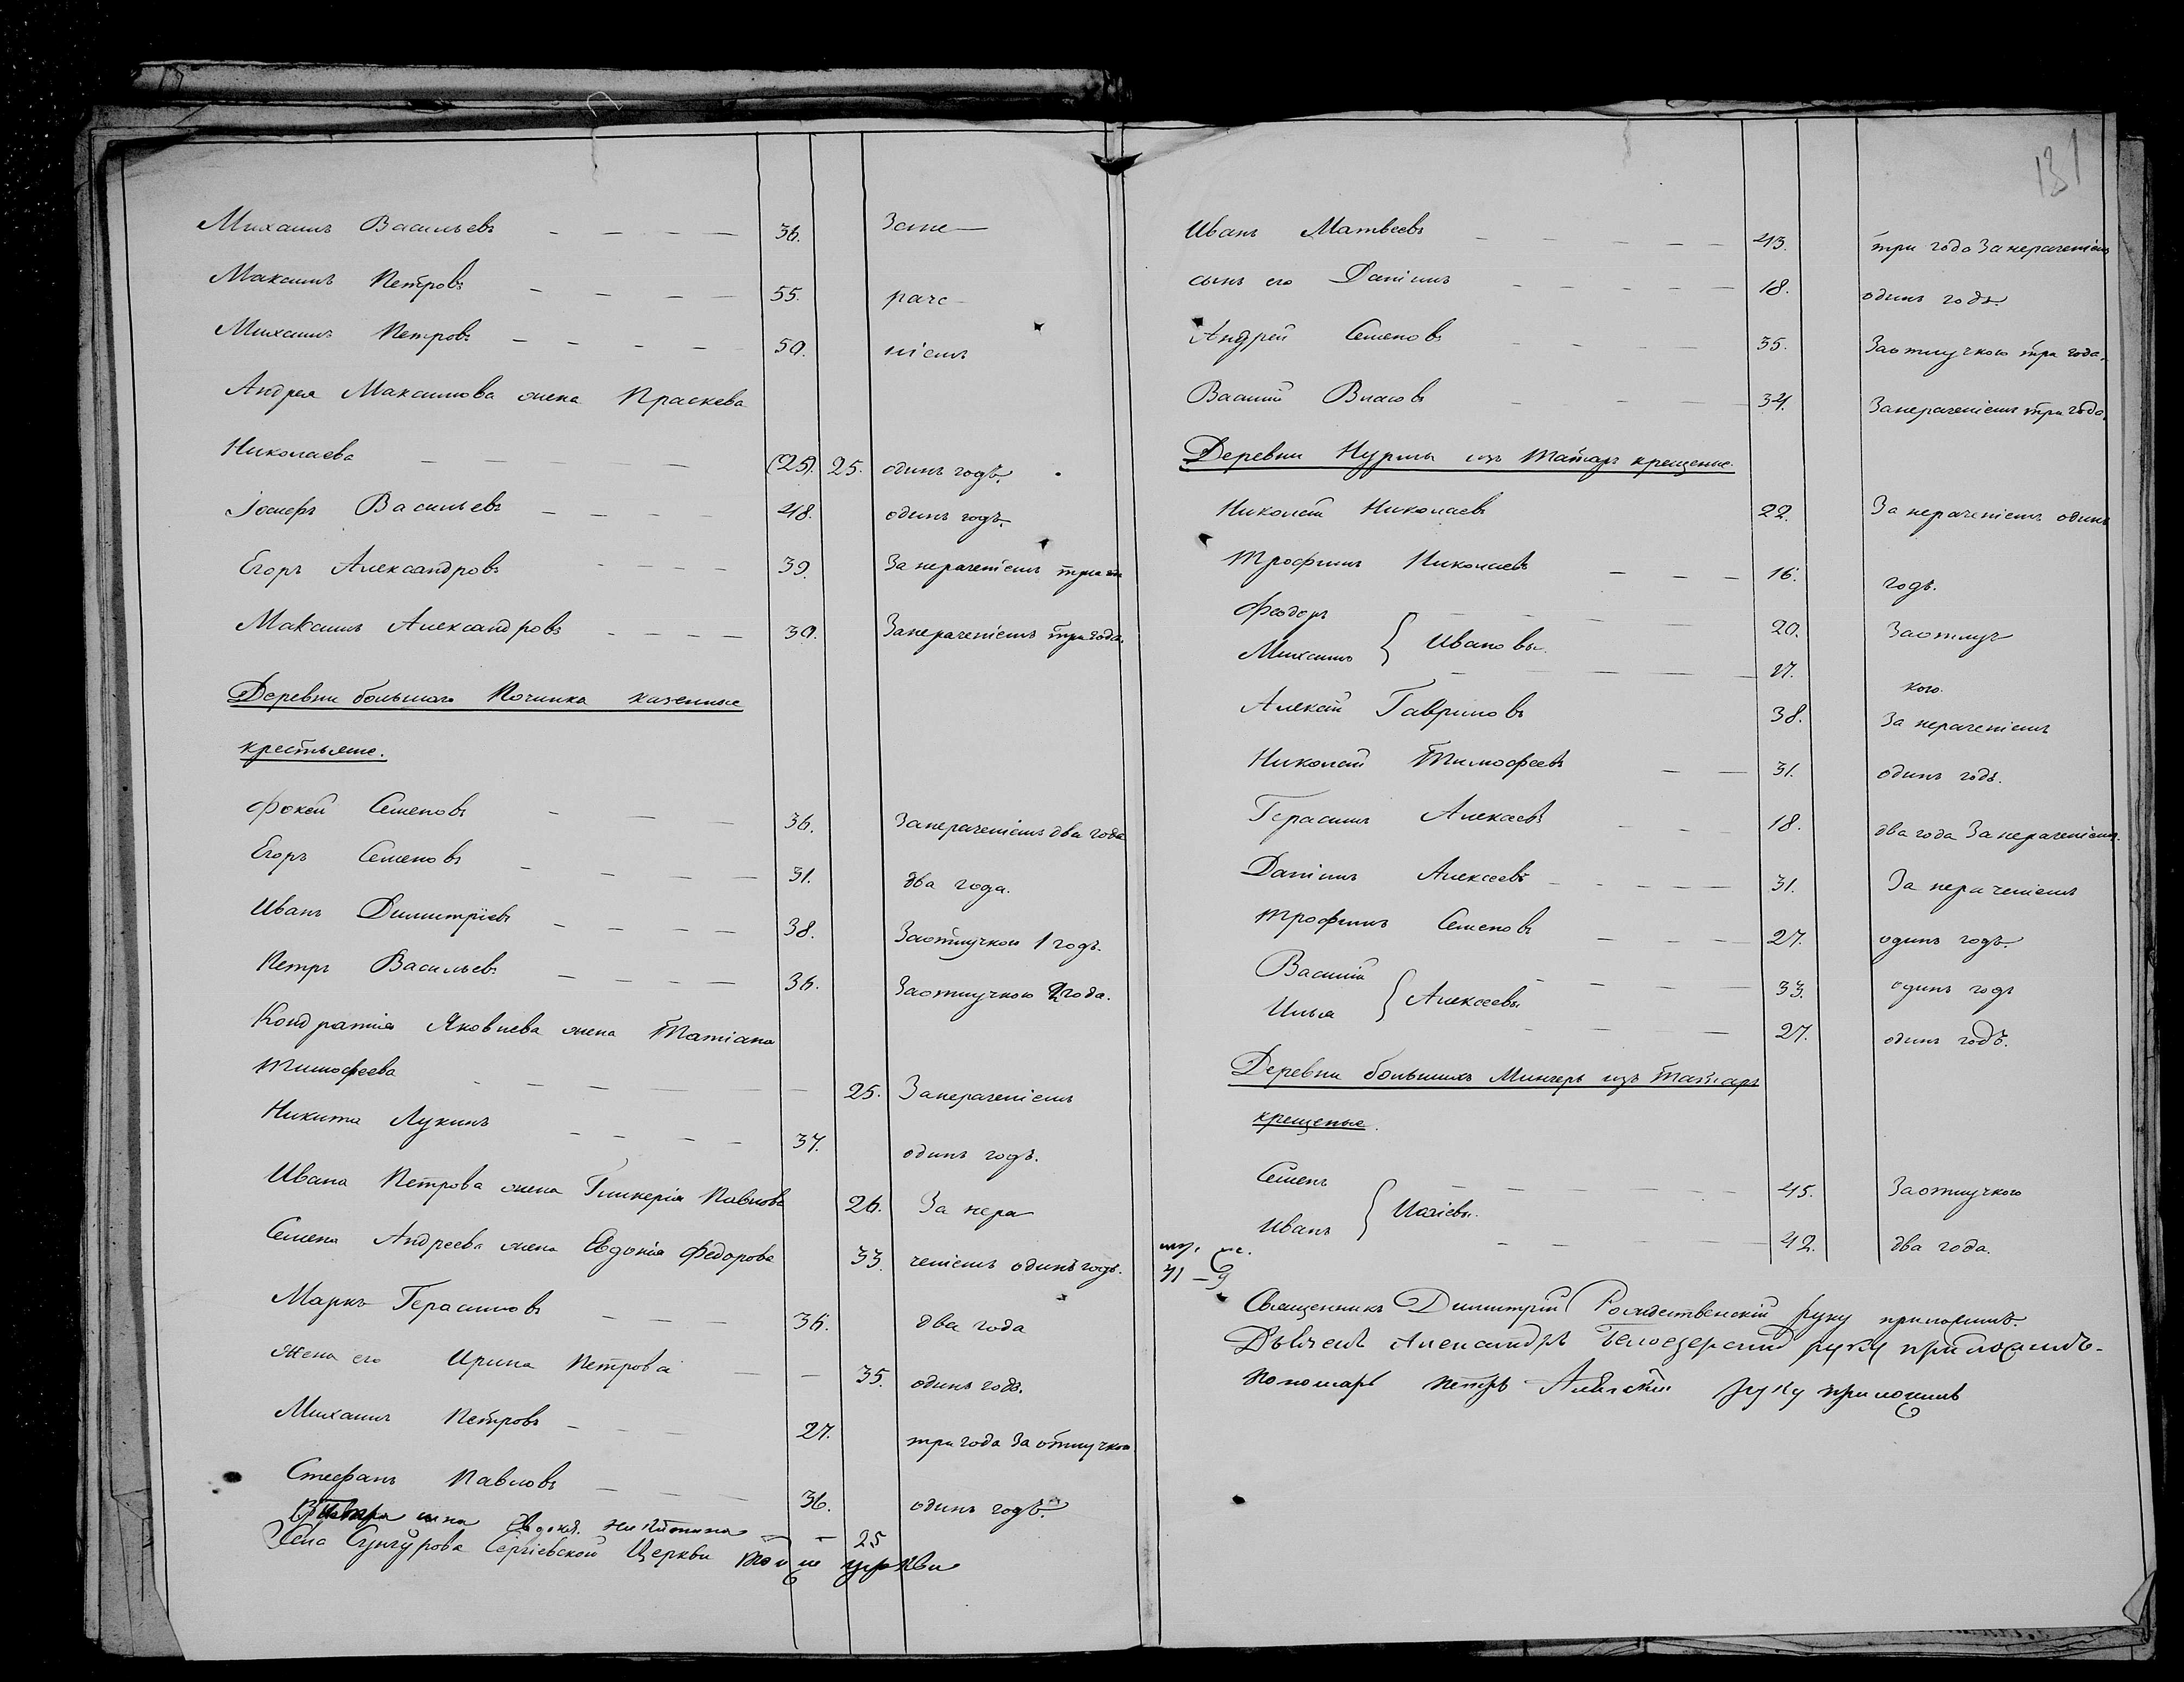 131
Михаилъ Васильевъ - - - - 36. За не-
Максимъ Петровъ - - - - 55. раче-
Михаилъ Петровъ - - - - 50. ніемъ
Андрея Максимова жена Праскева
Николаева - - - - (25). 25. одинъ годъ.
Іосифъ Васильевъ - - - - 48. одинъ годъ.
Егоръ Александровъ - - - - 39. За нераченіемъ три
Максимъ Александровъ - - - - 30. За нераченіемъ три года.
Деревни большаго Починка казенные
крестьяне.
Фокей Семеновъ - - - 36. За нераченіемъ два года
Егоръ Семеновъ - - - - 31. два года.
Иванъ Димитріевъ - - - - 38. За отлучкою 1 годъ.
Петръ Васильевъ - - - - 36. За отлучкою 2 года.
Кондратія Яковлева жена Татіана
Тимофеева - - - - 25. За нераченіемъ
Никита Лукинъ - - - - 37. одинъ годъ.
Ивана Петрова жена Гликерія Павлова 26. За нера
Семена Андреева жена Евдокія Федорова 33. ченіемъ одинъ годъ.
Маркъ Герасимовъ - - - 36. два года
жена его Ирина Петрова - - 35. одинъ годъ.
Михаилъ Петровъ - - - 27. три года за отлучкою
Стефанъ Павловъ - - - 36. одинъ годъ.
жена Евдокія Никитина - - 25
Села Сунгурова Сергіевской Церкви той же церкви
Иванъ Матвеевъ - - - - - 43. три года За нераченіемъ
сынъ его Даніилъ - - - - - 18. одинъ годъ.
Андрей Семеновъ - - - - 35. За отлучкою три года.
Василій Власовъ - - - - 34. За нераченіемъ три года.
Деревни Нурмы изъ татаръ крещеные.
Николай Николаевъ 22. За нераченіемъ одинъ
Трофимъ Николаевъ - - - 16. годъ.
Феодоръ - - - - 20. За отлуч
Михаилъ } Ивановы. - - - - 27. кою.
Алексей Гавриловъ 38. За нераченіемъ
Николай Тимофеевъ - - 31. одинъ годъ.
Герасимъ Алексеевъ - - 18. два года За нераченіемъ.
Даніилъ Алексеевъ - - - - 31. За нераченіемъ
Трофимъ Семеновъ - - - 27. одинъ годъ.
Василій - - - - 33. одинъ годъ
Илья } Алексеевы. - - - - 27. одинъ годъ.
Деревни большихъ Мингеръ изъ татаръ
крещеные.
Семенъ - - - - - 45. За отлучкою
Иванъ } Исаіевы. - - - - 42. два года.
му. же.
31 - 9
Священникъ Димитрій Рождественскій руку приложилъ.
Дьячекъ Александръ Белоезерскій руку приложилъ.
Пономарь Петръ руку приложилъ